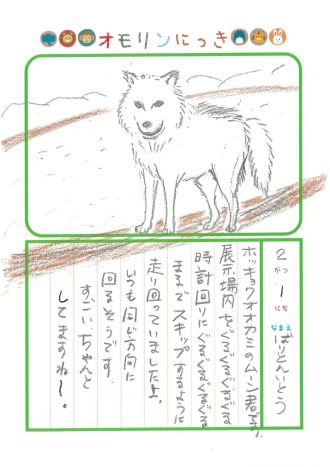 オモリンにっき
2がつ1にち なまえ ばりとんいとう
ホッキョクオオカミのムーン君です。
展示場内をぐるぐるぐるぐる
時計回りにぐるぐるぐるぐる
まるでスキップするように
走り回っていましたよ。
いつも同じ方向に
回るそうです。
すごい、ちゃんと
してますね〜。